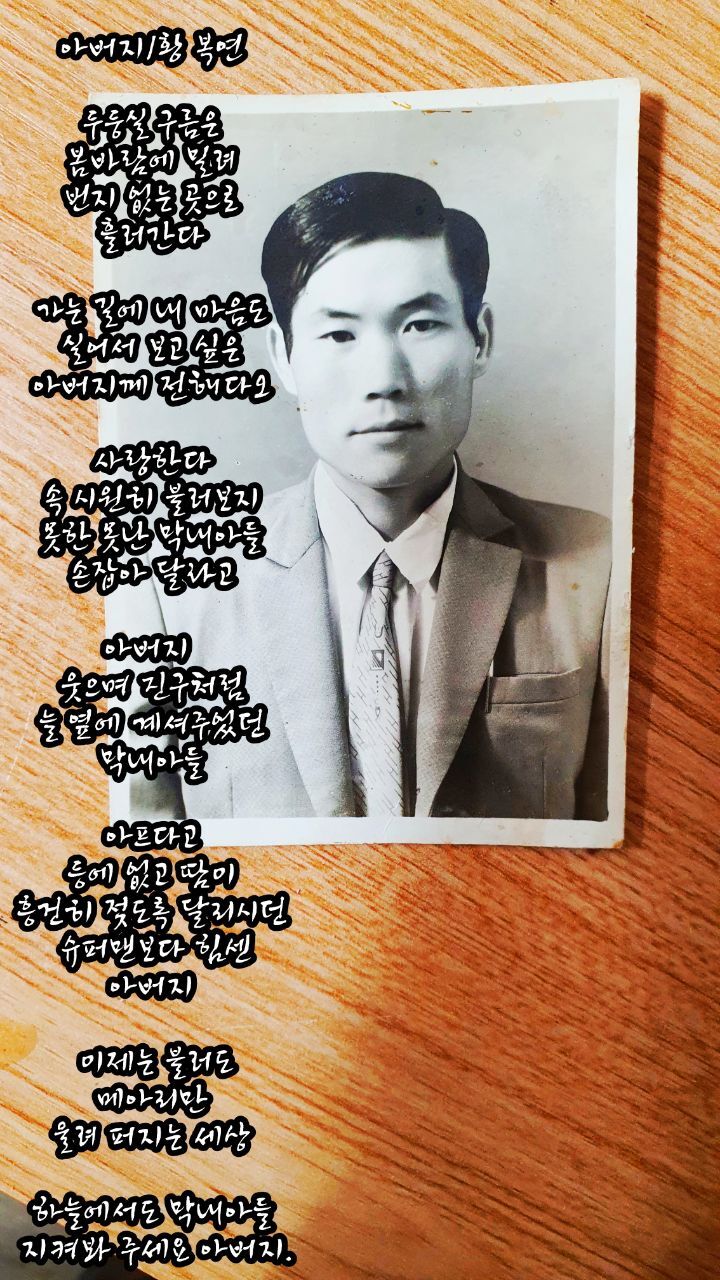 아버지/황 복연
두둥실 구름은
봄바람에 밀려
번지 없는 곳으로
흘러간다
가는 길에 내 마음도
실어서 보고 싶은
아버지께 전해다오
사랑한다
속 시원히 불러보지
못한 못난 막내아들
손잡아 달라고
아버지
웃으며 친구처럼
늘 옆에 계셔주었던
막내아들
아프다고
등에 없고 땀이
흥건히 젖도록 달리시던
슈퍼맨보다 힘센
아버지
이제는 불러도
메아리만
울려 퍼지는 세상
하늘에서도 막내아들
지켜봐 주세요 아버지.